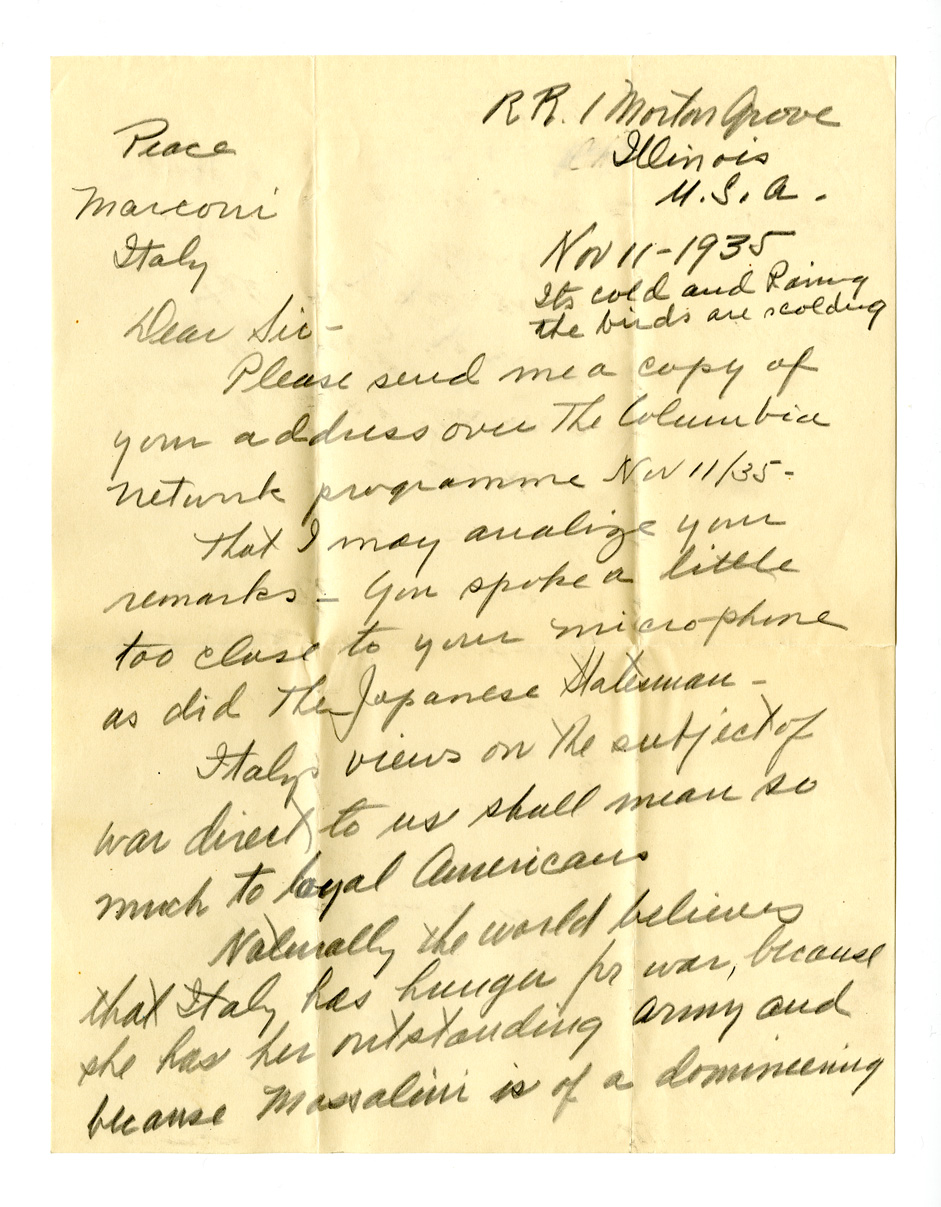 R R. 1 Morton Grove
Illinois
U. S. A.
Peace
Marconi
Italy
Nov 11 - 1935
Its cold and Raining
the birds are scolding
Dear Sir -
Please send me a copy of
your address over the Columbia
network programme Nov 11/35 -
that I may analize your
remarks - You spoke a little
too close to your microphone
as did the Japanese Statesman -
Italys views on the subject of
war direct to us shall mean so
much to loyal Americans
Naturally the world believes
that Italy has hunger for war, because
she has her outstanding army and
because Mossalini is of a domineering